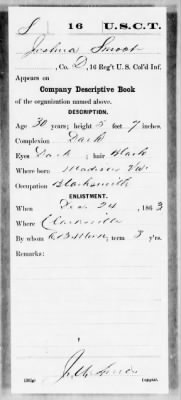 S | 16 | U.S.C.T.
Joshua Smoot
, Co. D, 16 Reg't U. S. Col'd Inf.
Appears on
Company Descriptive Book
of the organization named above.
DESCRIPTION.
Age 30 years; height 5 feet 7 inches.
Complexion Dark
Eyes Dark ; hair Black
Where born Madison
Occupation Blacksmith
ENLISTMENT.
When Dec 24 , 1863
Where Clarksville
By whom ; term 3 y'rs.
Remarks:
Copyist.